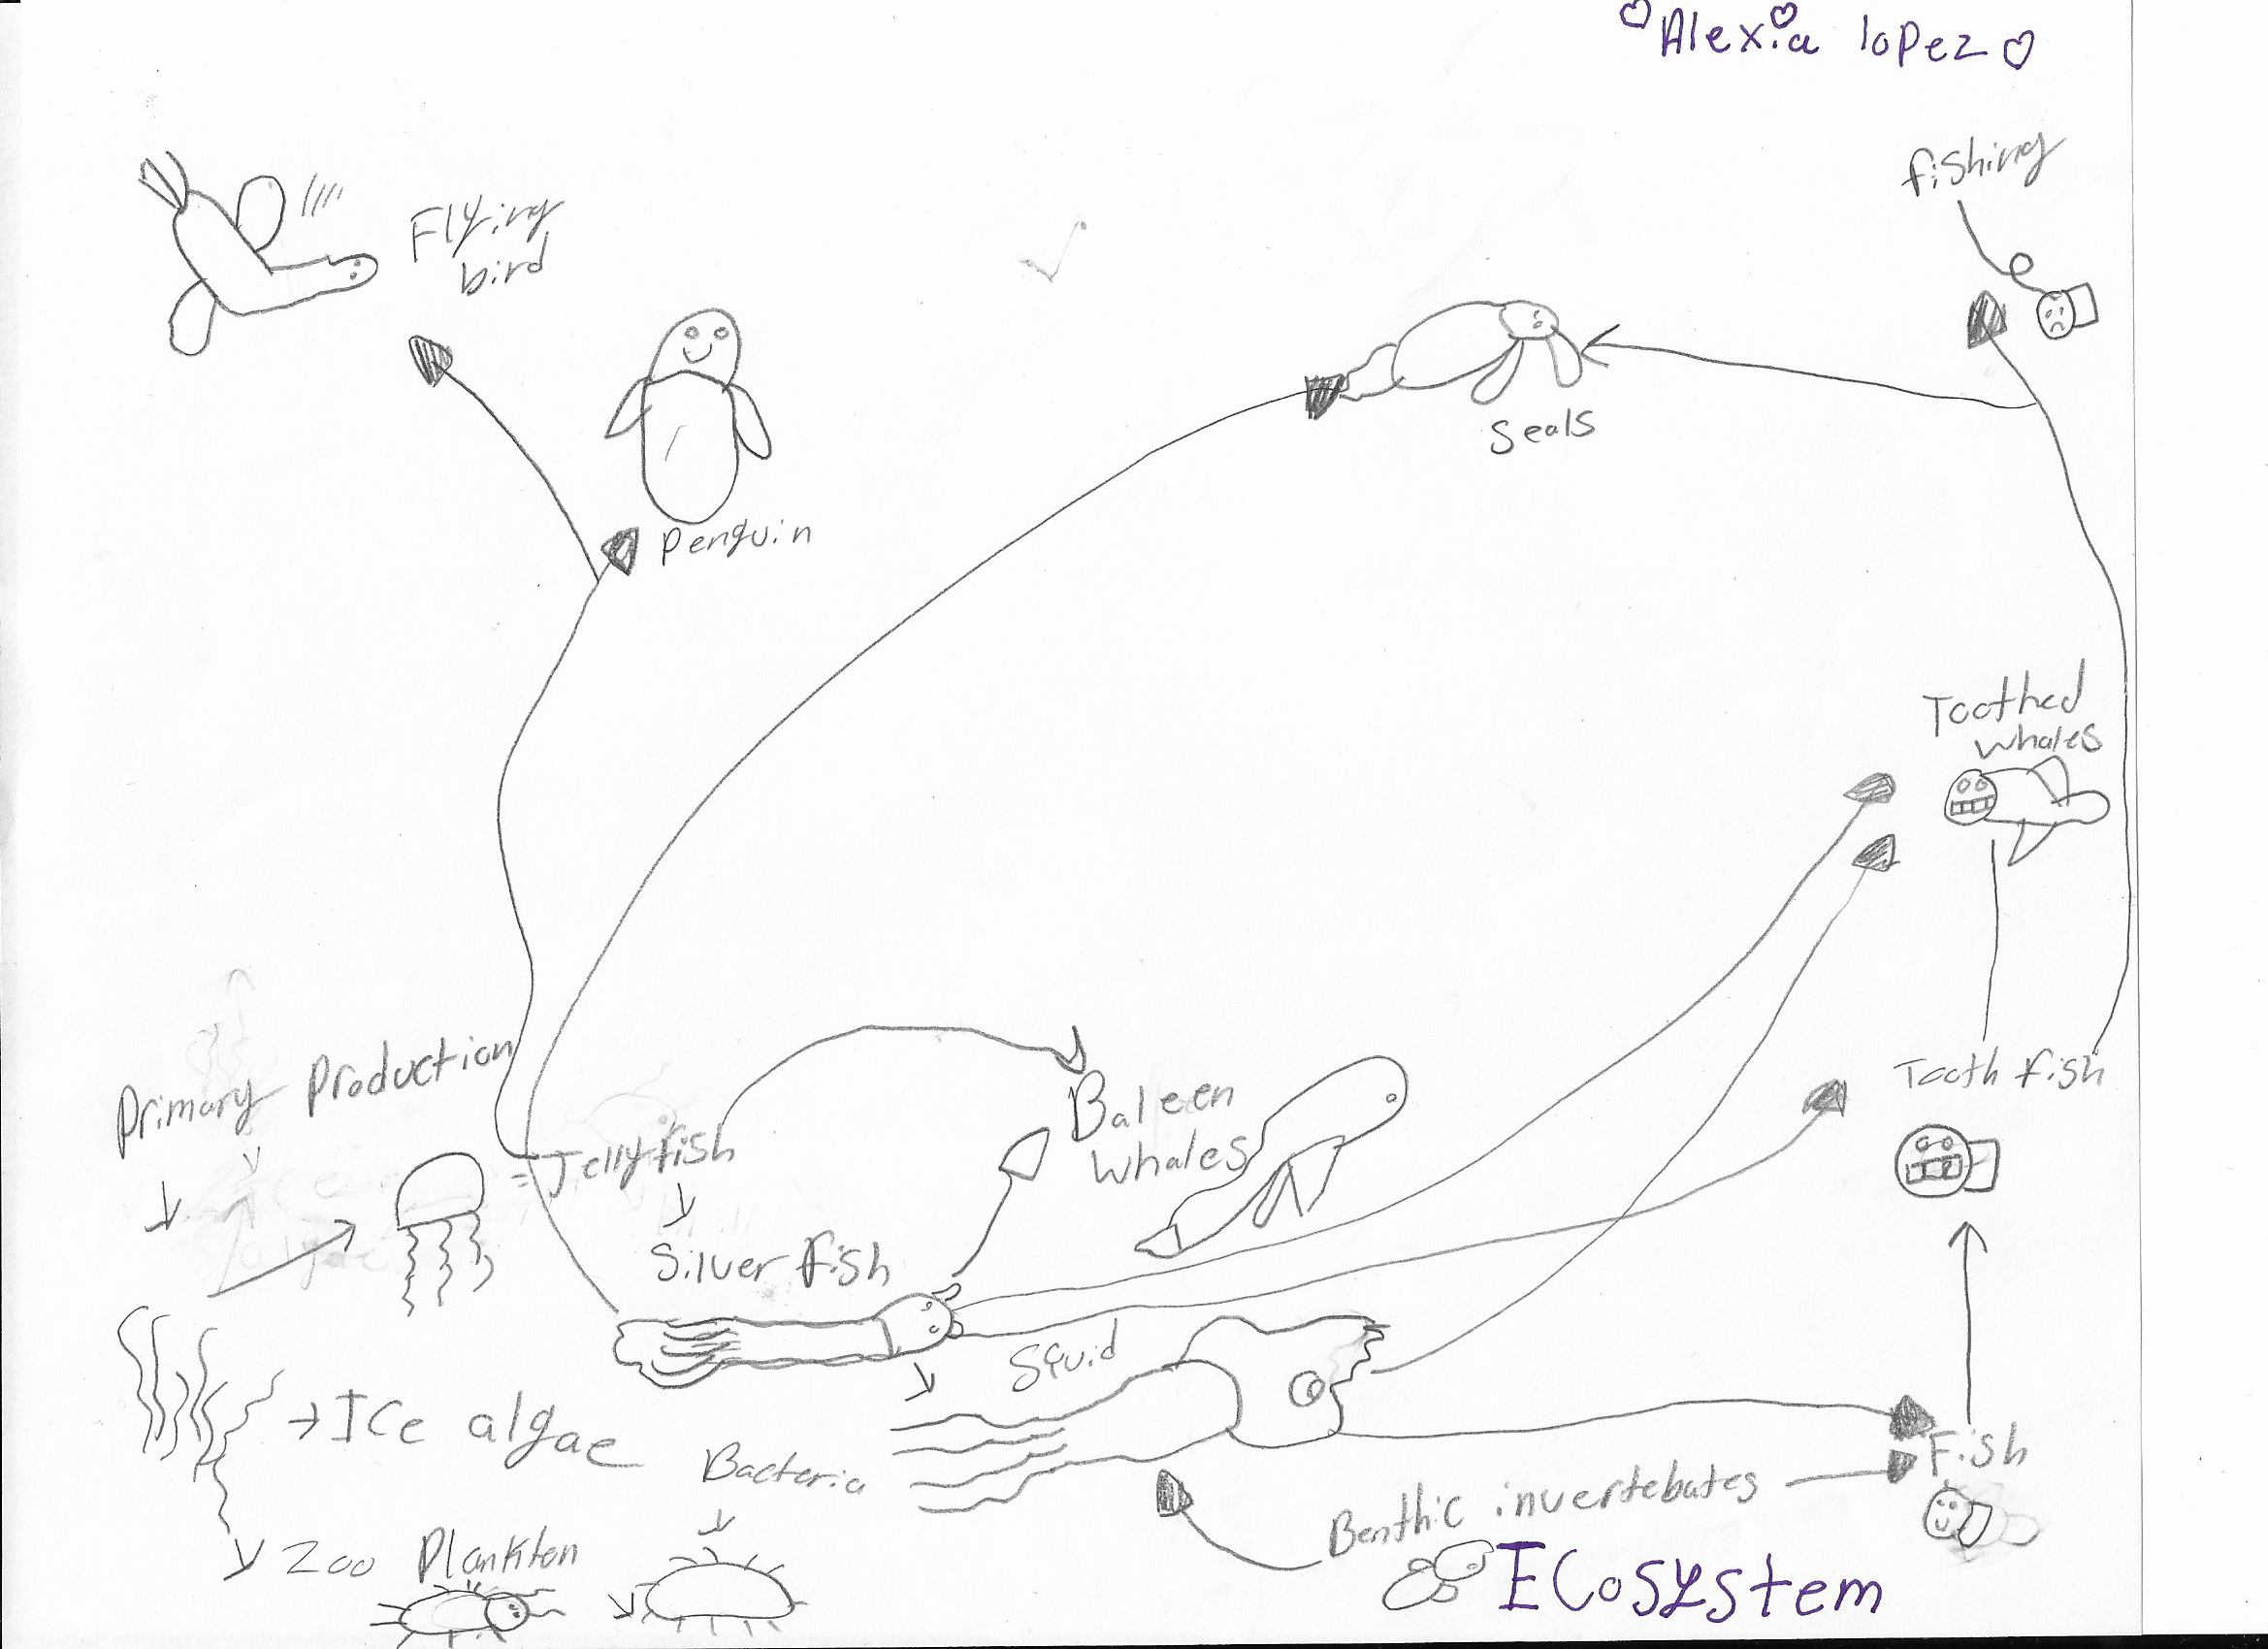 Alexia lopez
fishing
Flying
bird
Seals
Penguin
Toothed
whales
Primary Production
Tooth fish
Baleen
Whales
Jellyfish
Silver fish
Squid
ICe algae
Bacteria
Fish
Benthic invertebates
Zoo Plankton
ECosystem